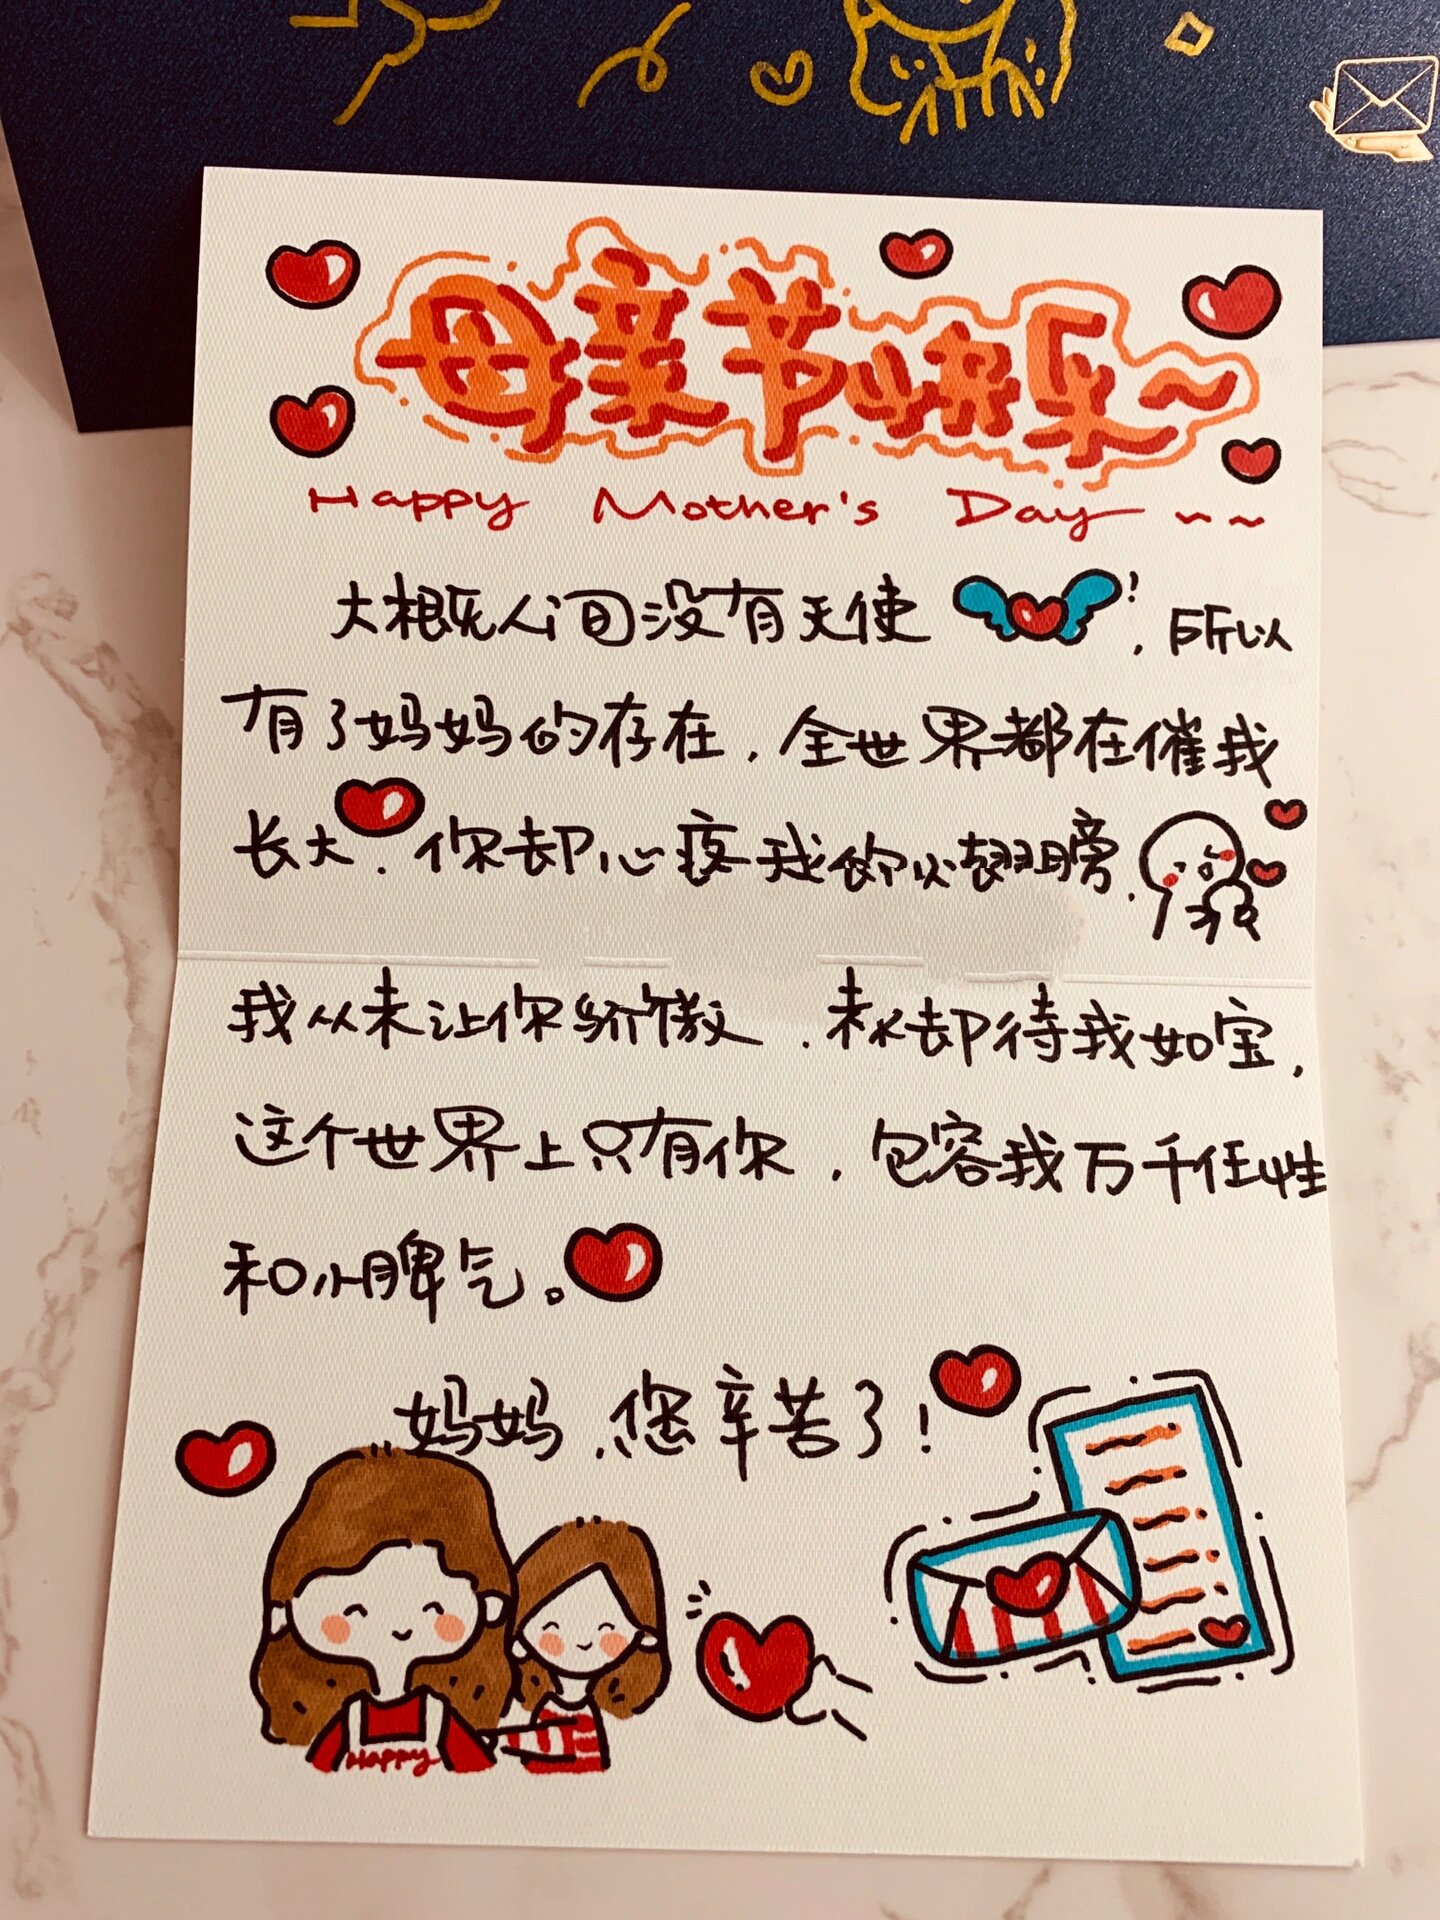 母亲节快乐~
Happy Mother's Day ~~
大概人间没有天使!，所以
有了妈妈的存在，全世界都在催我
长大，你却心疼我你小翅膀，
我从未让你骄傲，却待我如宝，
这个世界上只有你，包容我万千任性
和小脾气。
妈妈，您辛苦了！
Happy